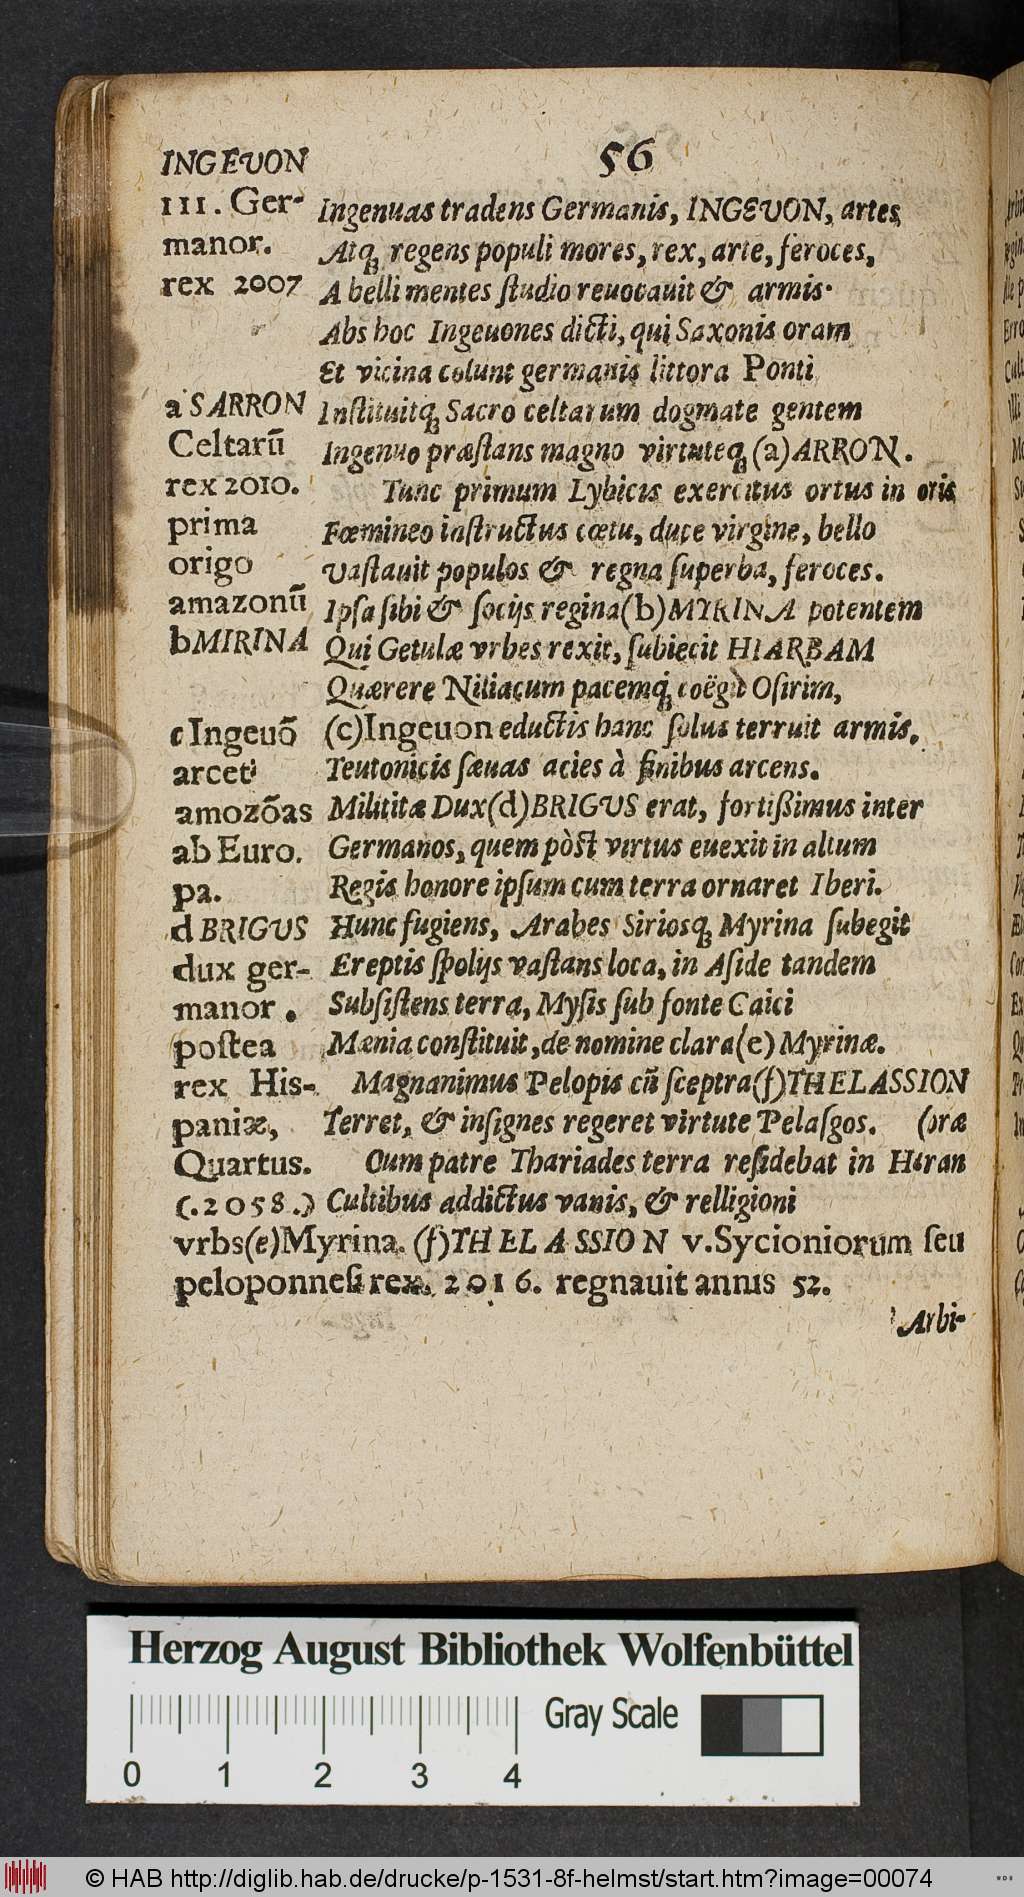 56
INGEVON
III. Ger-
manor.
rex 2007
Ingenuas tradens Germanis, INGEVON, artes
Atq; regens populi mores, rex, arte, feroces,
A belli mentes ſtudio reuocauit & armis.
Abs hoc Ingeuones dicti, qui Saxonis oram
Et vicina colunt germanis littora Ponti
Inſtituitq; Sacro celtarum dogmate gentem
Ingenuo præſtans magno virtuteq; (a) ARRON.
Tunc primum Lybicis exercitus ortus in oris
Fœmineo inſtructus cœtu, duce virgine, bello
Vaſtauit populos & regna ſuperba, feroces.
Ipſa ſibi & ſocijs regina (b) MYRINA potentem
Qui Getulæ vrbes rexit, ſubiecit HIARBAM
Quærere Niliacum pacemq; coëgit Oſirim,
(c) Ingeuon eductis hanc ſolus terruit armis.
Teutonicis ſæuas acies à finibus arcens.
Milititæ Dux (d) BRIGVS erat, fortißimus inter
Germanos, quem pòſt virtus euexit in altum
Regis honore ipſum cum terra ornaret Iberi.
Hunc fugiens, Arabes Siriosq; Myrina ſubegit
Ereptis ſpolijs vaſtans loca, in Aſide tandem
Subſiſtens terra, Myſis ſub fonte Caici
Mænia conſtituit, de nomine clara (e) Myrinæ.
Magnanimus Pelopis cũ ſceptra (f) THELASSION
Terret, & inſignes regeret virtute Pelaſgos. (oræ
Cum patre Thariades terra reſidebat in Haran
Cultibus addictus vanis, & relligioni
a SARRON
Celtarũ
rex 2010.
prima
origo
amazonũ
b MIRINA
c Ingeuõ
arcet
amozõas
ab Euro.
pa.
d BRIGVS
dux ger-
manor.
poſtea
rex His-
paniæ,
Quartus.
(.2058.)
vrbs (e) Myrina. (f) THELASSION v. Sycioniorum ſeu
peloponneſi rex. 2016. regnauit annis 52.
Arbi-
Herzog August Bibliothek Wolfenbüttel
Gray Scale
0 1 2 3 4
© HAB http://diglib.hab.de/drucke/p-1531-8f-helmst/start.htm?image=00074